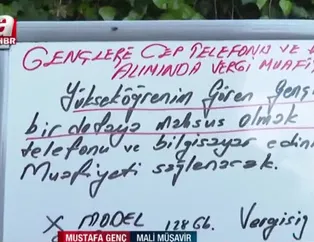 a
HBR
GENÇLERE CEP TELEFONU VE
ALIMINDA VERGİ MUAFİ
Yükseköğrenim Gören Genç
bir defaya mahsus olmak
telefonu ve bilgisayar edini
Muafiyeti sağlanacak.
MODEL 128 Gb. Vergisiz
MUSTAFA GENÇ MALİ MÜŞAVİR